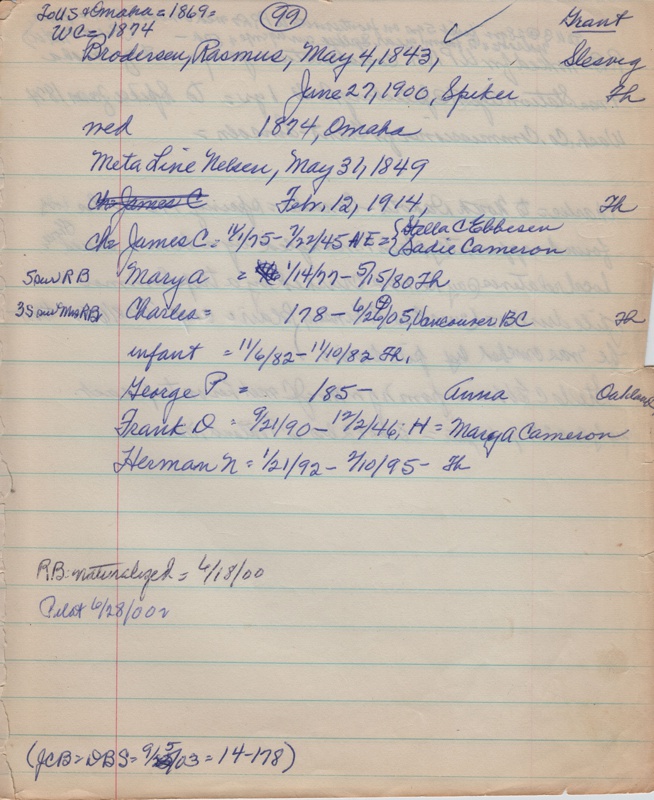 To US & Omaha = 1869 =
99
Grant
WC = 1874
Brodersen, Rasmus, May 4, 1843,
Slesvig
June 27, 1900, Spiker
Th
med 1874, Omaha
Meta Line Nelsen, May 31, 1849
ch= James C Feb. 12, 1914, Th
ch= James C = 11/1/75 - 7/22/45 HE = { Stella C Ebbesen
Sadie Cameron
5 sur RB Mary A = 1/14/77 - 5/15/80 Th
3 S sur Mrs RB Charles = /78 - 6/26/05, Vancouver BC Th
infant = 11/6/82 - 11/10/82 Th.
George P = /85 - Anna Oakland
Frank D = 9/21/90 - 12/2/46; H = Mary A Cameron
Herman N = 1/21/92 - 2/10/95 - Th
R.B. naturalized = 6/18/00
Pilot 6/28/00
(JCB = DBS = 9/5/03 = 14-178)